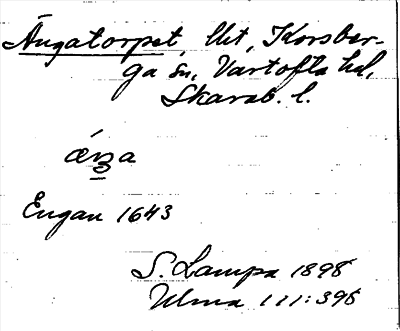 Ängatorpet, lht, Korsber-
ga sn, Vartofta hd,
Skarab. l.
æŋa
Engan 1643
S. Lampa 1898
Ulma 111:398